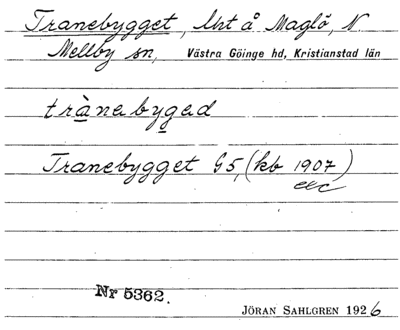 Tranebygget, lht å Maglö, N.
Mellby sn, Västra Göinge hd, Kristianstad län
trànebyged
Tranebygget G5, (kb 1907)
Nr 5362.
JÖRAN SAHLGREN 1926